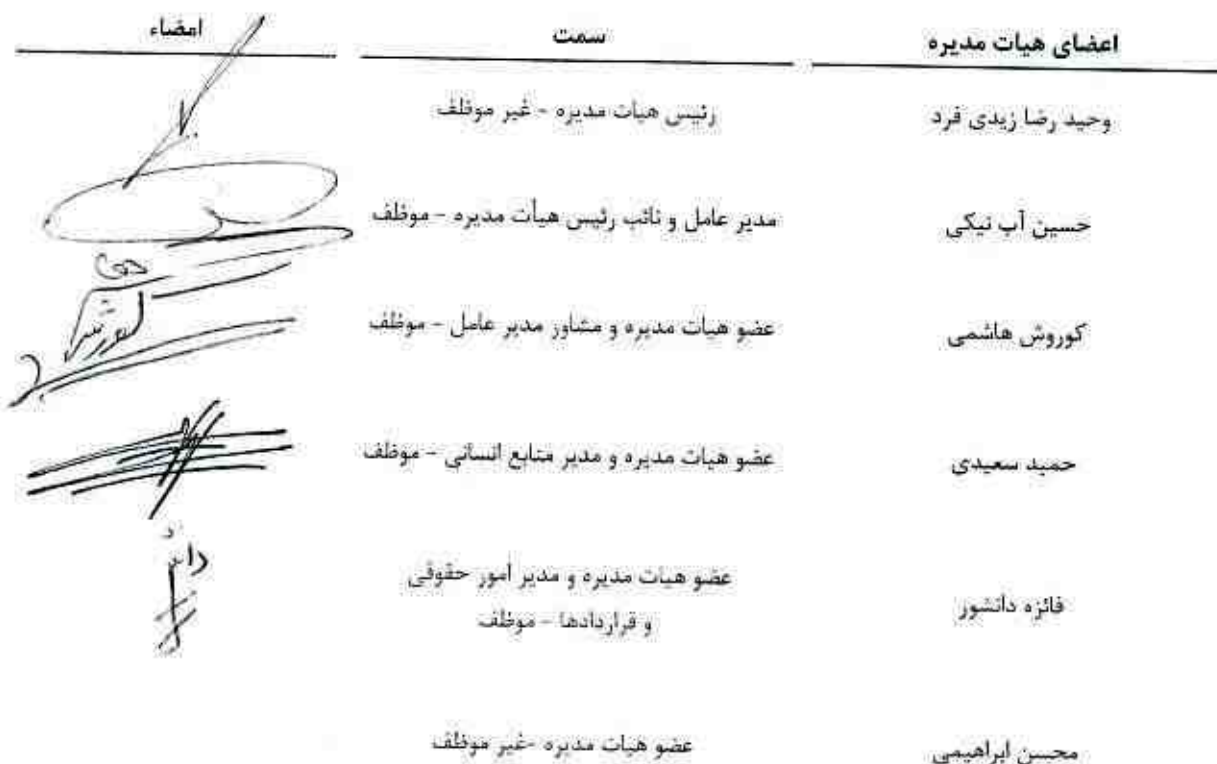 اعضای هیات مدیره سمت امضاء
وحید رضا زیدی فرد رئیس هیات مدیره - غیر موظف
حسین آب نیکی مدیر عامل و نائب رئیس هیأت مدیره - موظف
کوروش هاشمی عضو هیات مدیره و مشاور مدیر عامل - موظف
حمید سعیدی عضو هیات مدیره و مدیر منابع انسانی - موظف
فائزه دانشور عضو هیات مدیره و مدیر أمور حقوقی
و قراردادها - موظف
محسن ابراهیمی عضو هیات مدیره -غیر موظف